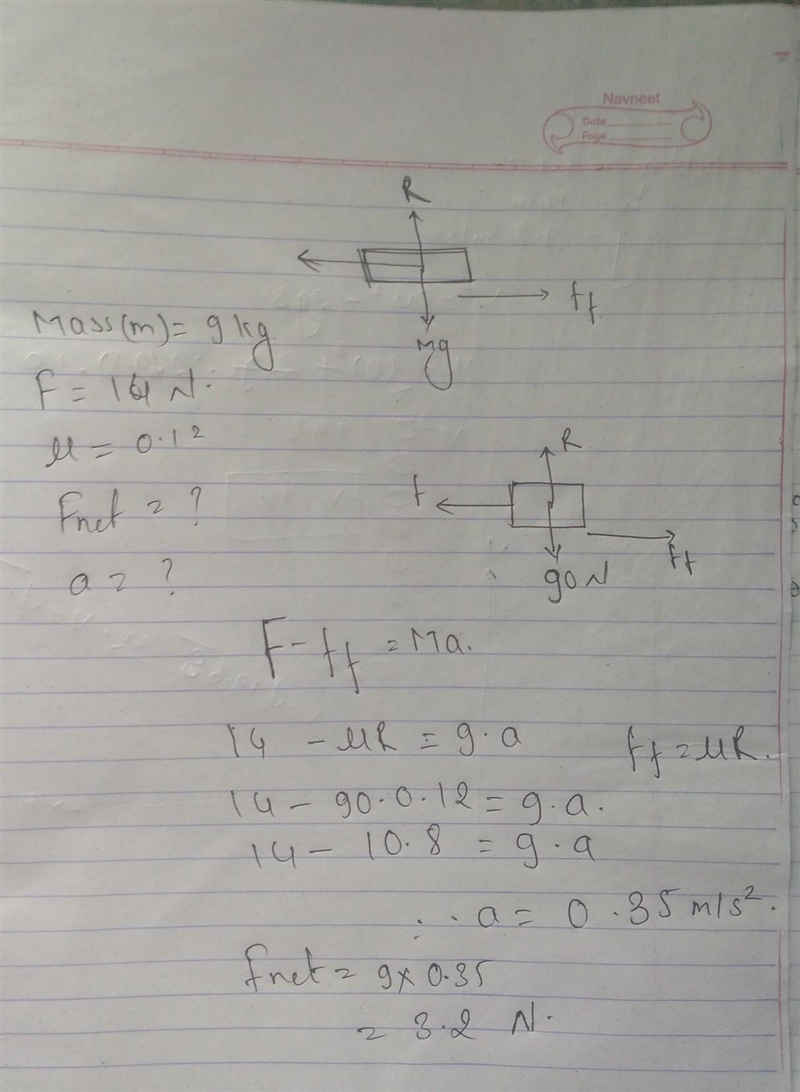 Navneet
Date
Page
R
ff
Mg
Mass(m) = 9 kg
F = 14 N.
μ = 0.12
R
f
Fnet = ?
ff
90 N
a = ?
F - ff = Ma.
14 - μR = 9·a
ff = μR.
14 - 90·0.12 = 9·a.
14 - 10.8 = 9·a
∴ a = 0.35 m/s².
Fnet = 9 x 0.35
= 3.2 N.